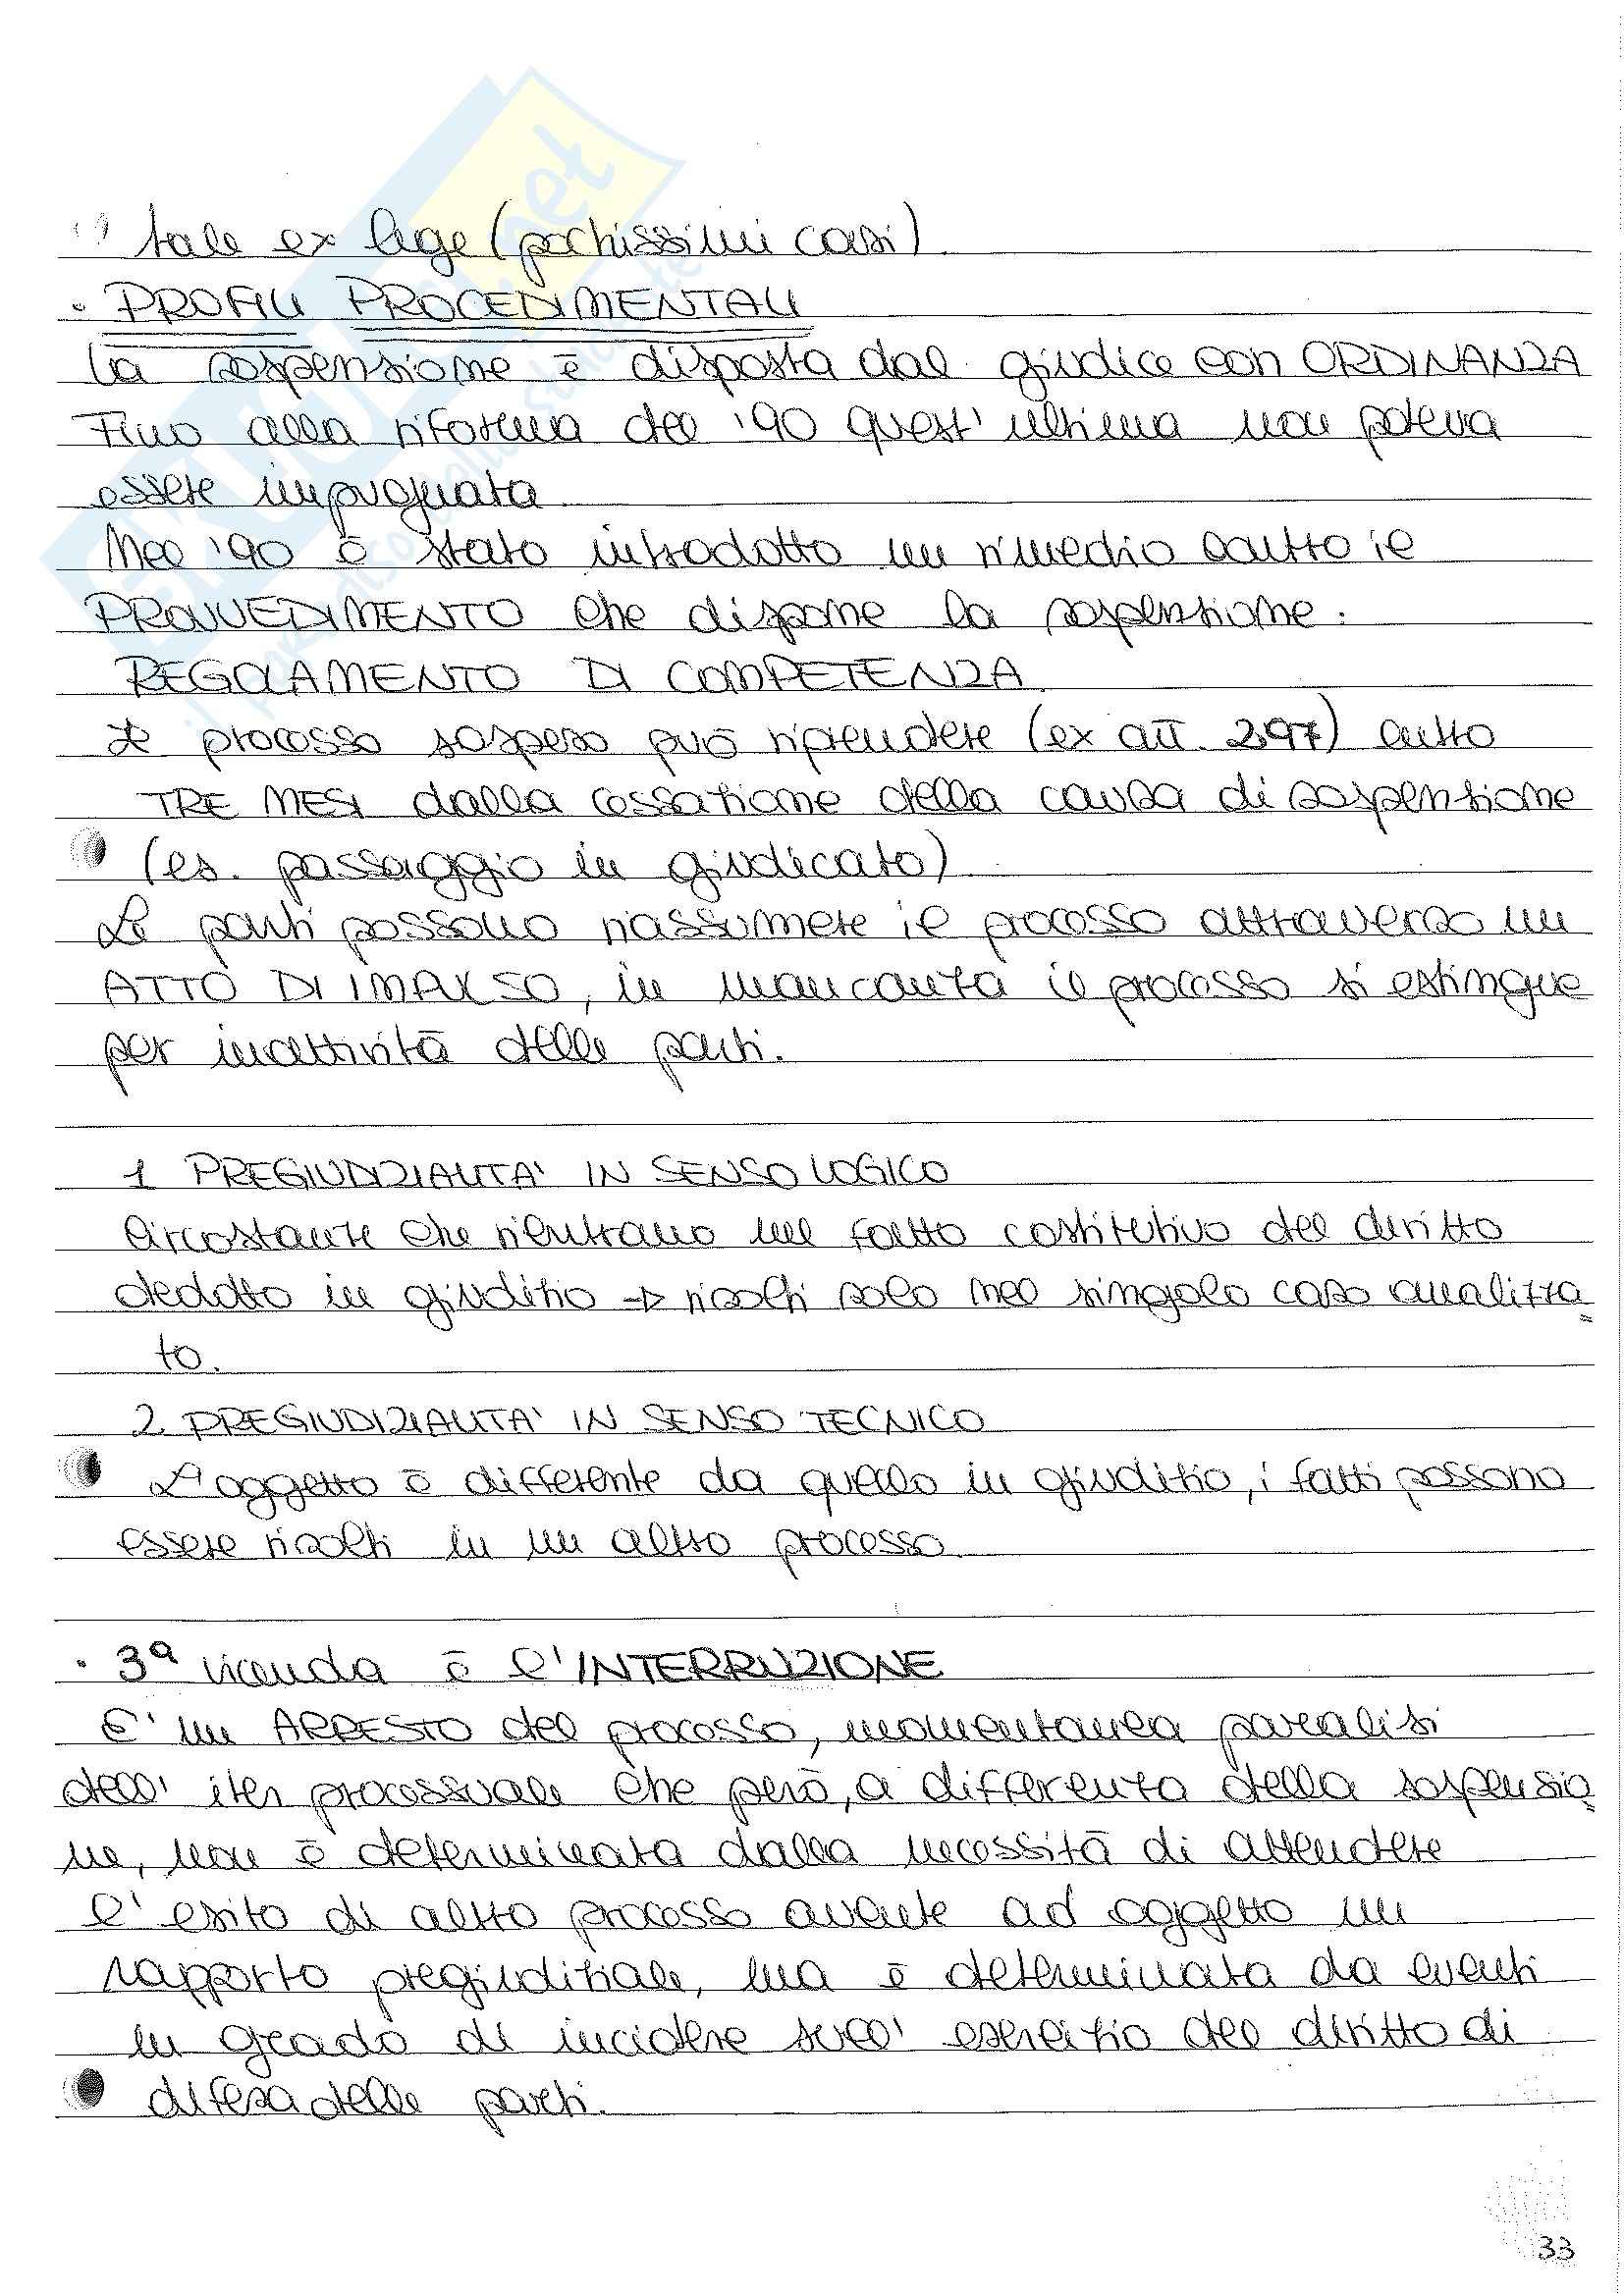 tale ex lege (pochissimi casi)
• PROFILI PROCEDIMENTALI
La sospensione è disposta dal giudice con ORDINANZA
Fino alla riforma del '90 quest'ultima non poteva
essere impugnata
Nel '90 è stato introdotto un rimedio contro il
PROVVEDIMENTO che dispone la sospensione:
REGOLAMENTO DI COMPETENZA
Il processo sospeso può riprendere (ex art. 297) entro
TRE MESI dalla cessazione della causa di sospensione
(es. passaggio in giudicato)
Le parti possono riassumere il processo attraverso un
ATTO DI IMPULSO, in mancanza il processo si estingue
per inattività delle parti.
1 PREGIUDIZIALITA' IN SENSO LOGICO
Circostanze che rientrano nel fatto costitutivo del diritto
dedotto in giudizio → risolti solo nel singolo caso analizza
to.
2. PREGIUDIZIALITA' IN SENSO TECNICO
L'oggetto è differente da quello in giudizio, i fatti possono
essere risolti in un altro processo.
• 3ª vicenda è l'INTERRUZIONE
E' un ARRESTO del processo, momentanea paralisi
dell'iter processuale che però, a differenza della sospensio
ne, non è determinata dalla necessità di attendere
l'esito di altro processo avente ad oggetto un
rapporto pregiudiziale, ma è determinata da eventi
in grado di incidere sull'esercizio del diritto di
difesa delle parti.
33